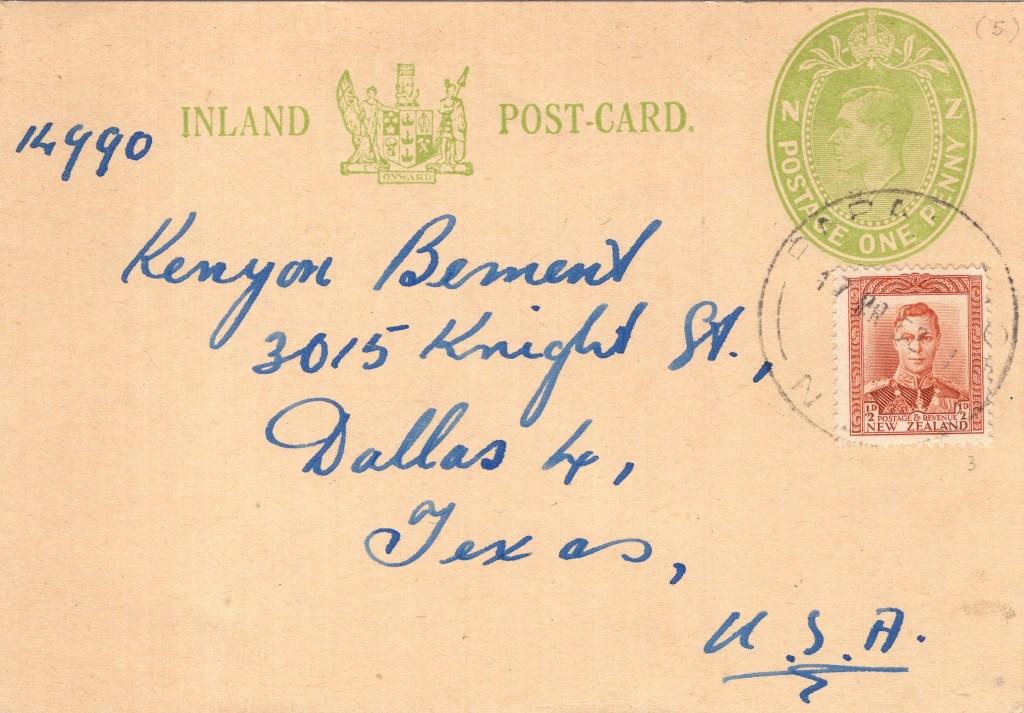 (5)
INLAND POST-CARD.
ONWARD
N Z
POSTAGE ONE PENNY
14990
Kenyon Bement
3015 Knight St.,
Dallas 4,
Texas,
U.S.A.
½D POSTAGE & REVENUE ½D
NEW ZEALAND
3